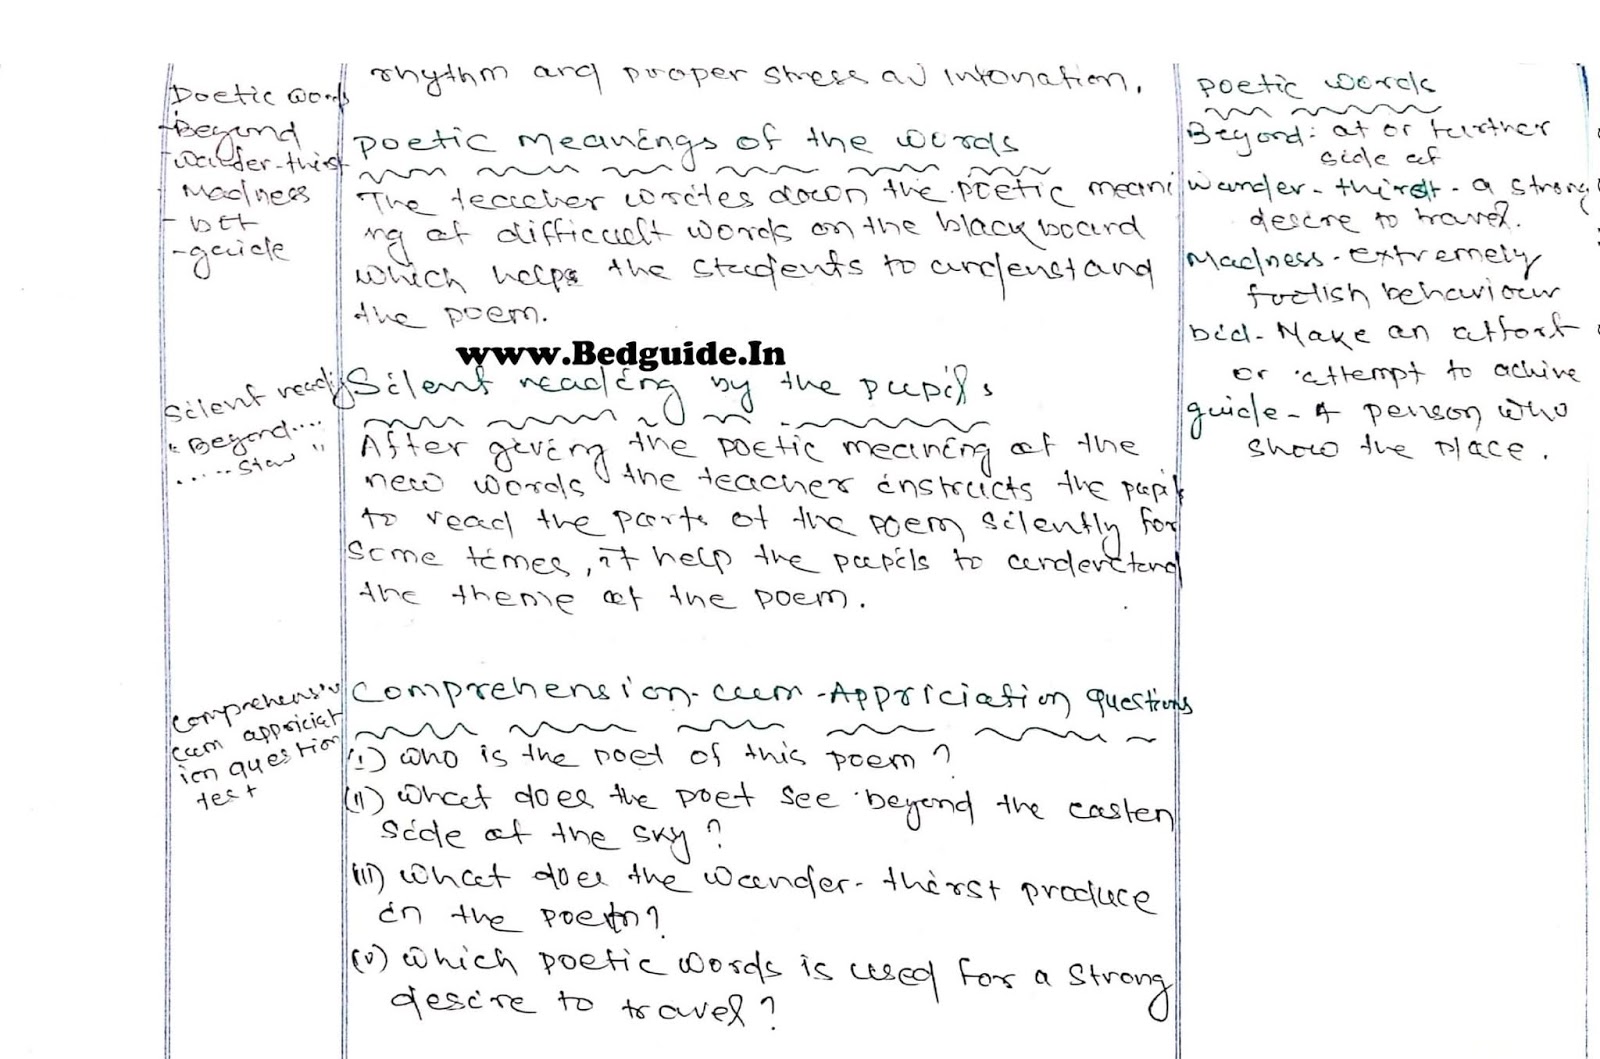 Poetic words
- Beyond
- Wander-thirst
- Madness
- bid
- guide
Silent reading
"Beyond....
.....Star"
Comprehension
cum appriciat
ion question
test
rhythm and proper stress and intonation.
Poetic Meanings of the words
The teacher writes down the poetic meani
ng of difficult words on the blackboard
which helps the students to understand
the poem.
www.Bedguide.In
Silent reading by the pupils
After giving the poetic meaning of the
new words the teacher instructs the pupils
to read the parts of the poem silently for
some times, it help the pupils to understand
the theme of the poem.
Comprehension-cum-Appriciation questions
(i) Who is the poet of this poem?
(ii) What does the poet see beyond the easten
side of the sky?
(iii) What does the wander-thirst produce
in the poem?
(v) Which poetic words is used for a strong
desire to travel?
Poetic words
Beyond: at or further
side of
Wander-thirst - a strong
desire to travel.
Madness - extremely
foolish behaviour
bid - Make an effort
or attempt to achive
guide - A person who
show the place.